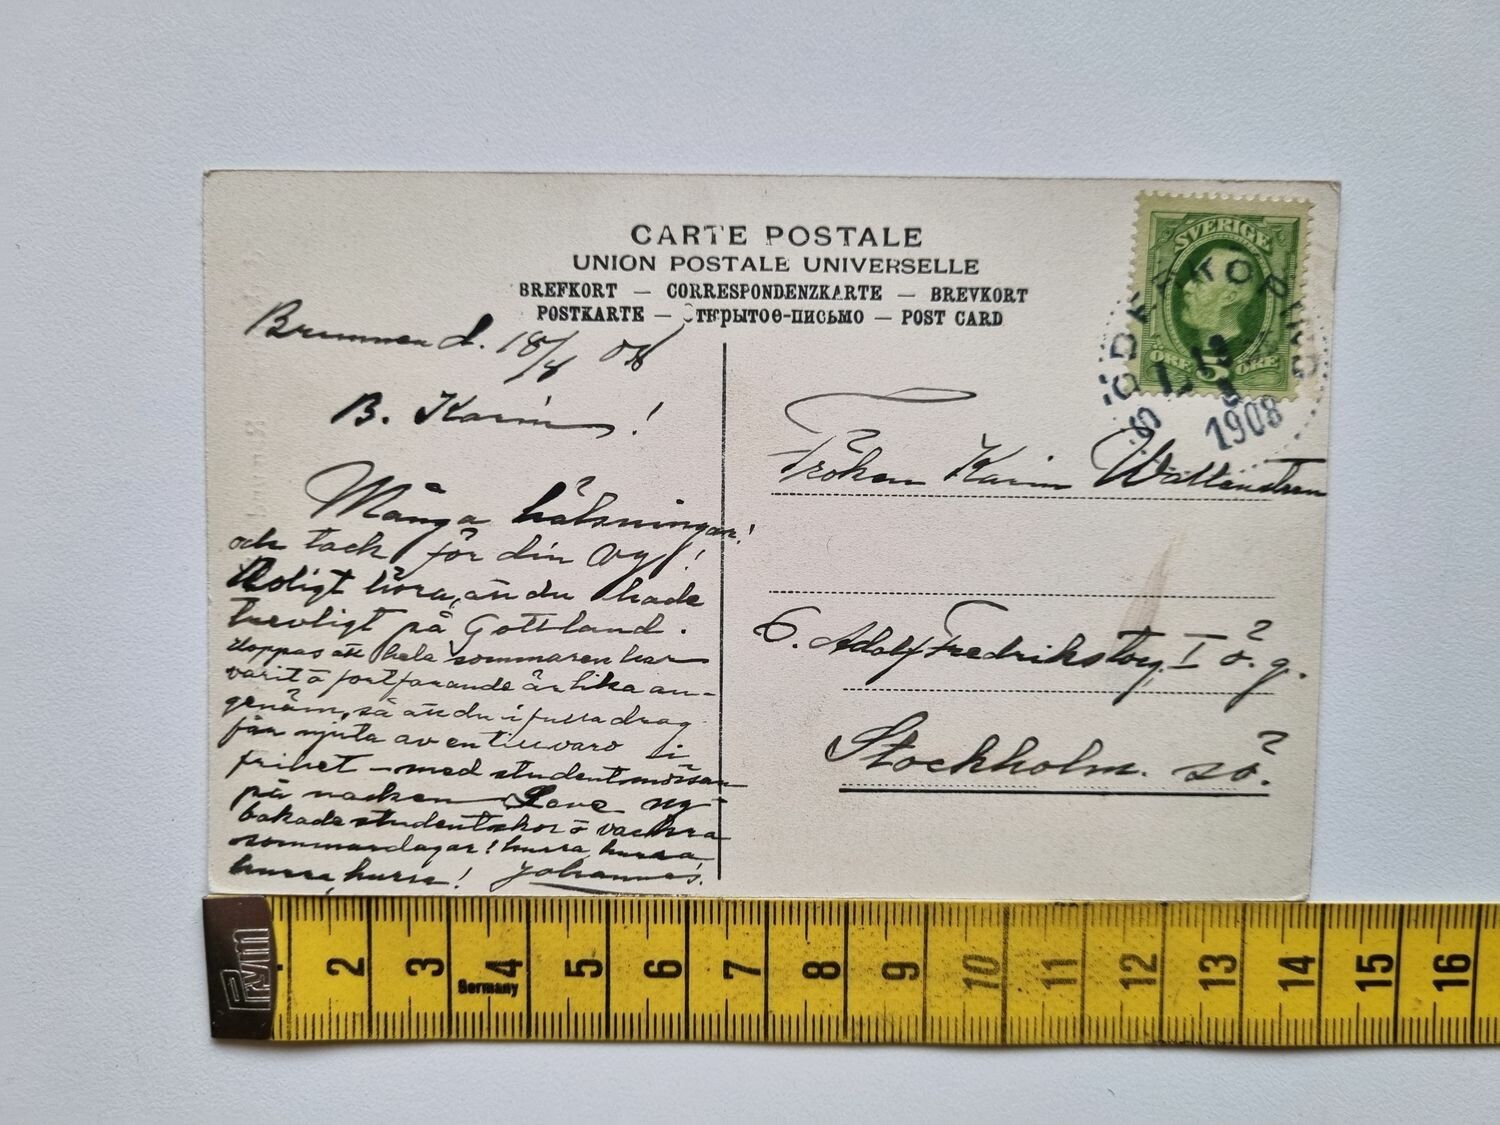 CARTE POSTALE
UNION POSTALE UNIVERSELLE
BREFKORT — CORRESPONDENZKARTE — BREVKORT
POSTKARTE — Открытоѳ-письмо — POST CARD
SVERIGE
ÖRE 5 ÖRE
SÖDERKÖPING
1908
d. 18/8 08
B. Karin!
Många hälsningar!
och tack för din vy!
Roligt höra, att du hade
trevligt på Gottland.
Hoppas att hela sommaren har
varit o fortfarande är lika an-
genäm, så att du i fulla drag
får njuta av en tillvaro i
frihet – med studentmössan
på nacken. Leve ny-
bakade studentskor o vackra
sommardagar! hurra hurra
hurra, hurra! Johannes.
Fröken Karin
6. Adolf Fredrikstorg I ö. g.
Stockholm. sö.
Prym
2 3 4 5 6 7 8 9 10 11 12 13 14 15 16
Germany